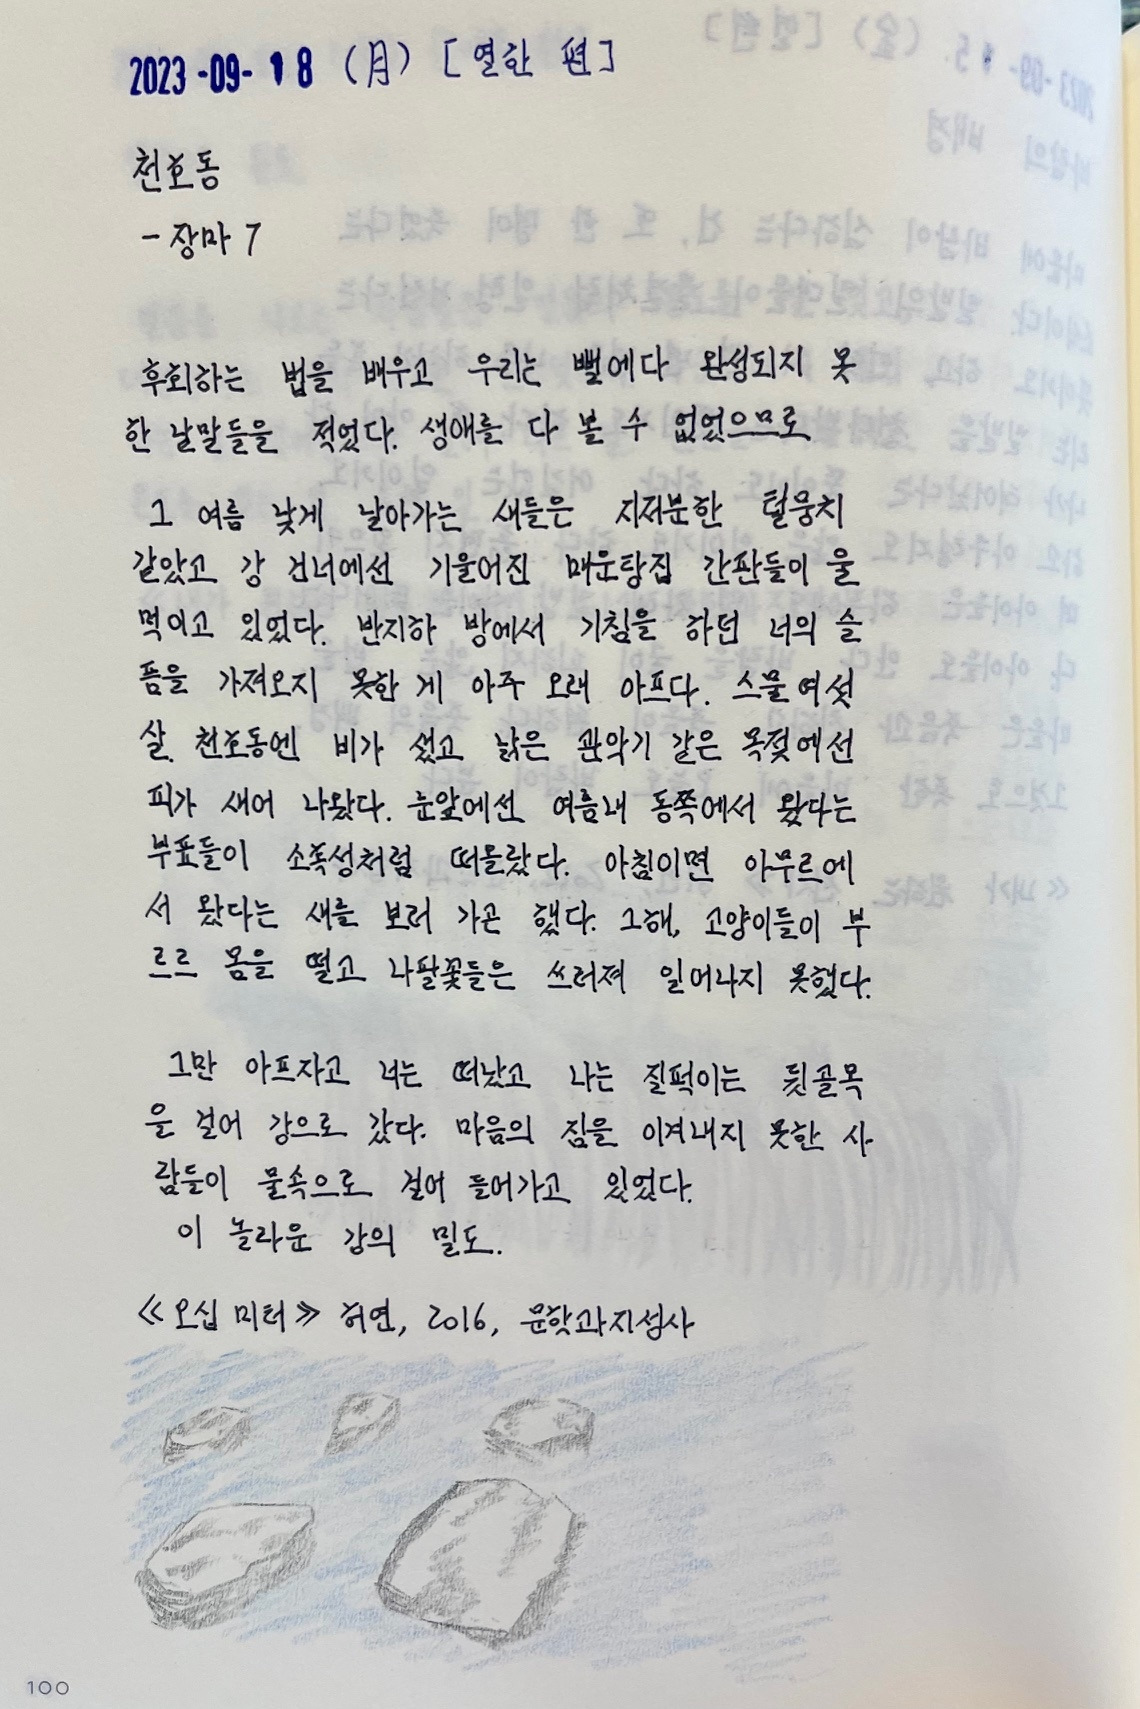 2023-09-18 (月) [열한 편]
천호동
- 장마 7
후회하는 법을 배우고 우리는 뻘에다 완성되지 못
한 낱말들을 적었다. 생애를 다 볼 수 없었으므로
그 여름 낮게 날아가는 새들은 지저분한 털뭉치
같았고 강 건너에선 기울어진 매운탕집 간판들이 울
먹이고 있었다. 반지하 방에서 기침을 하던 너의 슬
픔을 가져오지 못한 게 아주 오래 아프다. 스물여섯
살. 천호동엔 비가 섰고 낡은 관악기 같은 목젖에선
피가 새어 나왔다. 눈앞에선 여름내 동쪽에서 왔다는
부표들이 소혹성처럼 떠올랐다. 아침이면 아무르에
서 왔다는 새를 보러 가곤 했다. 그해, 고양이들이 부
르르 몸을 떨고 나팔꽃들은 쓰러져 일어나지 못했다.
그만 아프자고 너는 떠났고 나는 질퍽이는 뒷골목
을 걸어 강으로 갔다. 마음의 짐을 이겨내지 못한 사
람들이 물속으로 걸어 들어가고 있었다.
이 놀라운 강의 밀도.
≪오십 미터≫ 허연, 2016, 문학과지성사
100